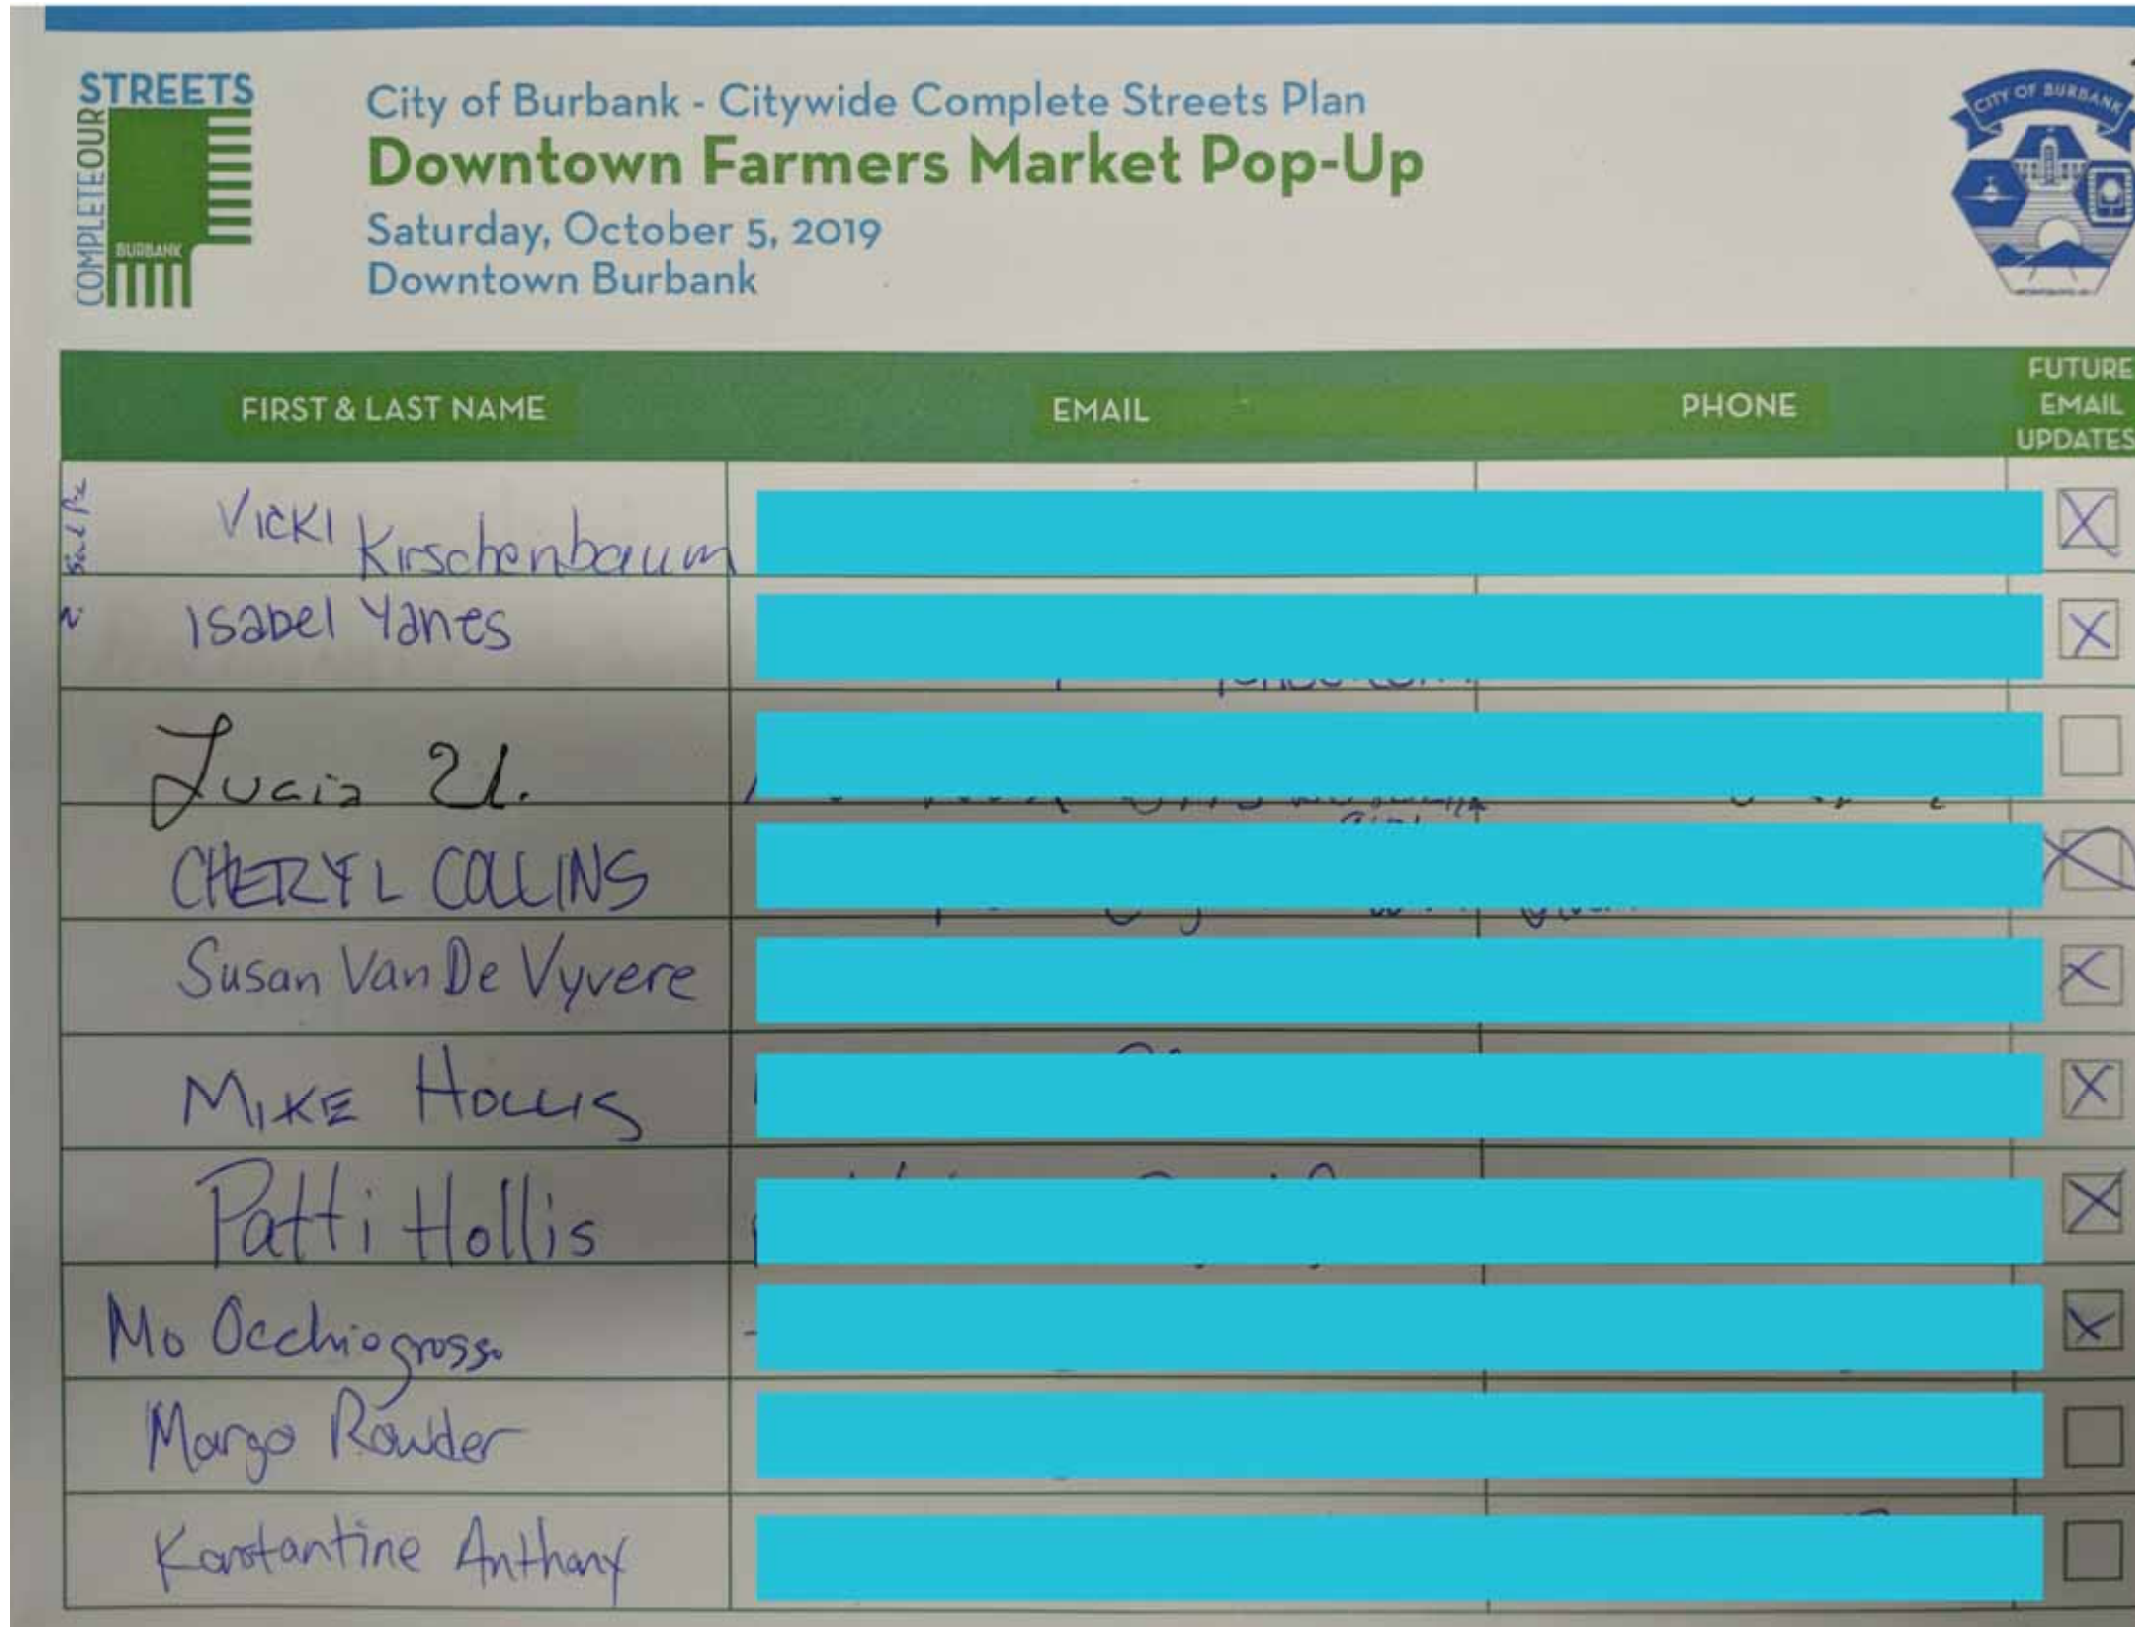 STREETS
COMPLETEOUR
BURBANK
City of Burbank - Citywide Complete Streets Plan
Downtown Farmers Market Pop-Up
Saturday, October 5, 2019
Downtown Burbank
CITY OF BURBANK
FIRST & LAST NAME EMAIL PHONE FUTURE EMAIL UPDATES
VICKI Kirschenbaum
Isabel Yanes
Lucia U.
CHERYL COLLINS
Susan Van De Vyvere
MIKE HOLLIS
Patti Hollis
Mo Occhiogrosso
Margo Rowder
Konstantine Anthony